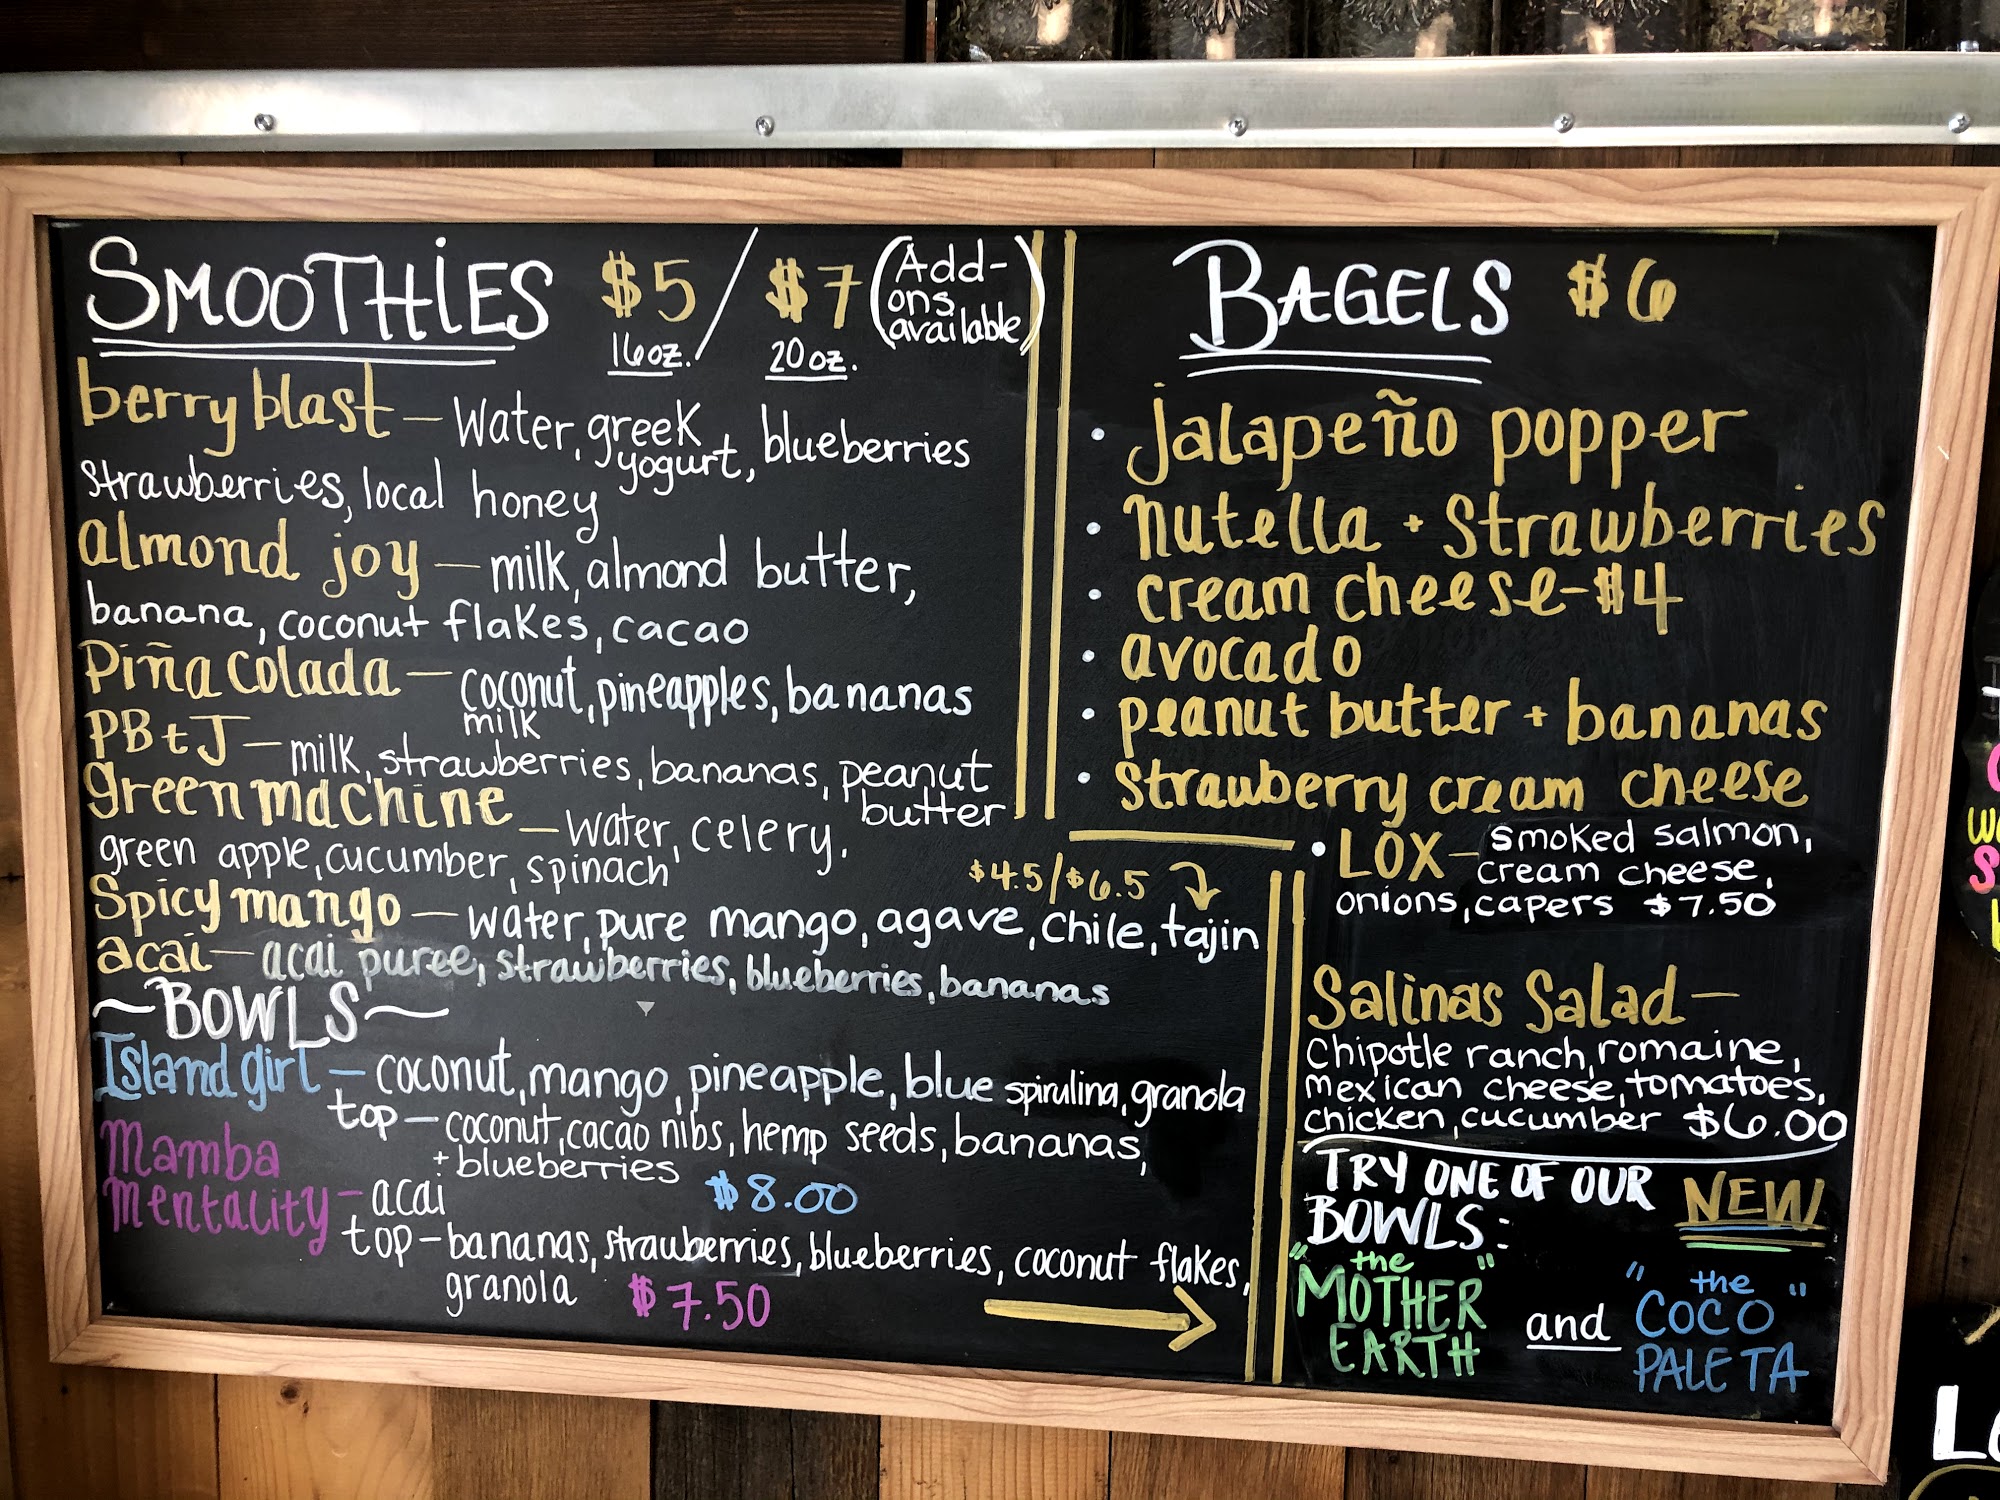 SMOOTHIES $5 / $7 (Add-ons available)
16oz. 20oz.
berry blast — Water, greek yogurt, blueberries
strawberries, local honey
almond joy — milk, almond butter,
banana, coconut flakes, cacao
Piña Colada — coconut, pineapples, bananas
milk
PB + J — milk, strawberries, bananas, peanut
butter
green machine — water, celery,
green apple, cucumber, spinach
$4.5/$6.5
Spicy mango — water, pure mango, agave, chile, tajin
acai — acai puree, strawberries, blueberries, bananas
~BOWLS~
Island girl — coconut, mango, pineapple, blue spirulina, granola
top — coconut, cacao nibs, hemp seeds, bananas,
+ blueberries $8.00
Mamba
mentality — acai
top — bananas, strawberries, blueberries, coconut flakes,
granola $7.50
BAGELS $6
• jalapeño popper
• nutella + strawberries
• cream cheese - $4
• avocado
• peanut butter + bananas
• strawberry cream cheese
• LOX — smoked salmon,
cream cheese,
onions, capers $7.50
Salinas Salad —
Chipotle ranch, romaine,
mexican cheese, tomatoes,
chicken, cucumber $6.00
TRY ONE OF OUR NEW
BOWLS:
"the MOTHER EARTH" and "the COCO PALETA"